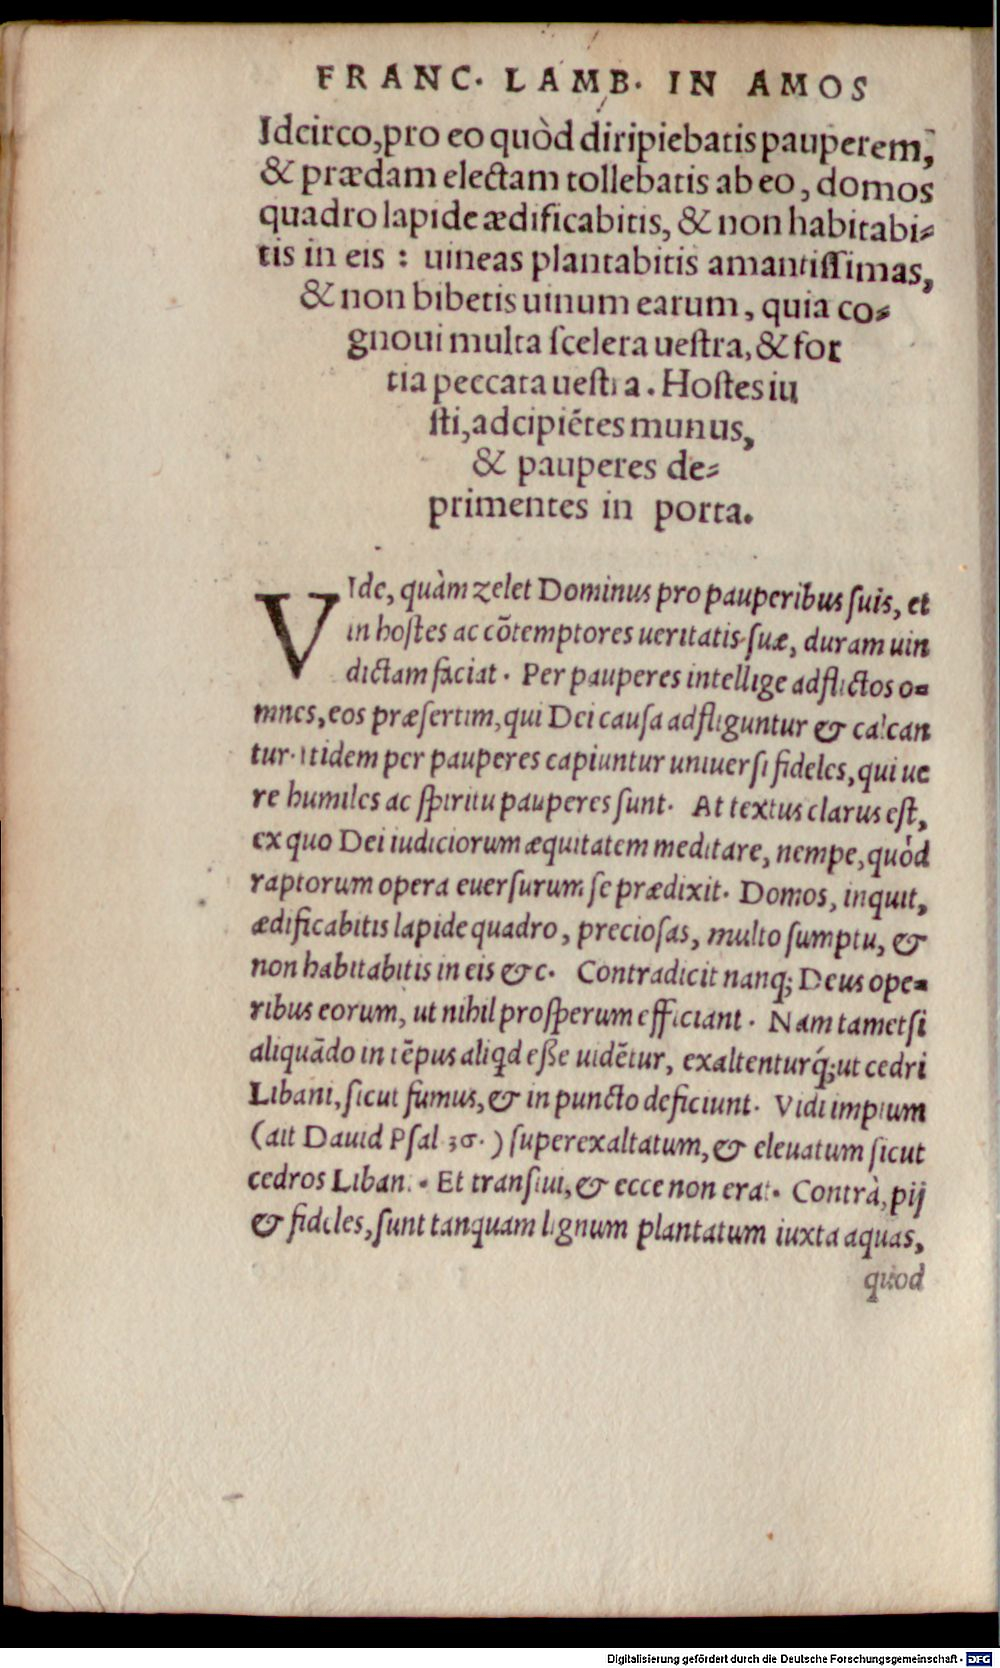 FRANC. LAMB. IN AMOS
Idcirco, pro eo quòd diripiebatis pauperem,
& prædam electam tollebatis ab eo, domos
quadro lapide ædificabitis, & non habitabi⸗
tis in eis : uineas plantabitis amantiſſimas,
& non bibetis uinum earum, quia co⸗
gnoui multa ſcelera ueſtra, & for
tia peccata ueſtra. Hoſtes iu
ſti, adcipiẽtes munus,
& pauperes de⸗
primentes in porta.
VIde, quàm zelet Dominus pro pauperibus ſuis, et
in hoſtes ac cõtemptores ueritatis ſuæ, duram uin
dictam faciat. Per pauperes intellige adflictos o⸗
mnes, eos præſertim, qui Dei cauſa adfliguntur & calcan
tur. Itidem per pauperes capiuntur uniuerſi fideles, qui ue
re humiles ac ſpiritu pauperes ſunt. At textus clarus eſt,
ex quo Dei iudiciorum æquitatem meditare, nempe, quòd
raptorum opera euerſurum ſe prædixit. Domos, inquit,
ædificabitis lapide quadro, precioſas, multo ſumptu, &
non habitabitis in eis &c. Contradicit nanq; Deus ope⸗
ribus eorum, ut nihil proſperum efficiant. Nam tametſi
aliquãdo in tẽpus aliqd eſſe uidẽtur, exaltenturq́; ut cedri
Libani, ſicut fumus, & in puncto deficiunt. Vidi impium
(ait Dauid Pſal 36.) ſuperexaltatum, & eleuatum ſicut
cedros Libani. Et tranſiui, & ecce non erat. Contrà, pij
& fideles, ſunt tanquam lignum plantatum iuxta aquas,
quod
Digitalisierung gefördert durch die Deutsche Forschungsgemeinschaft - DFG